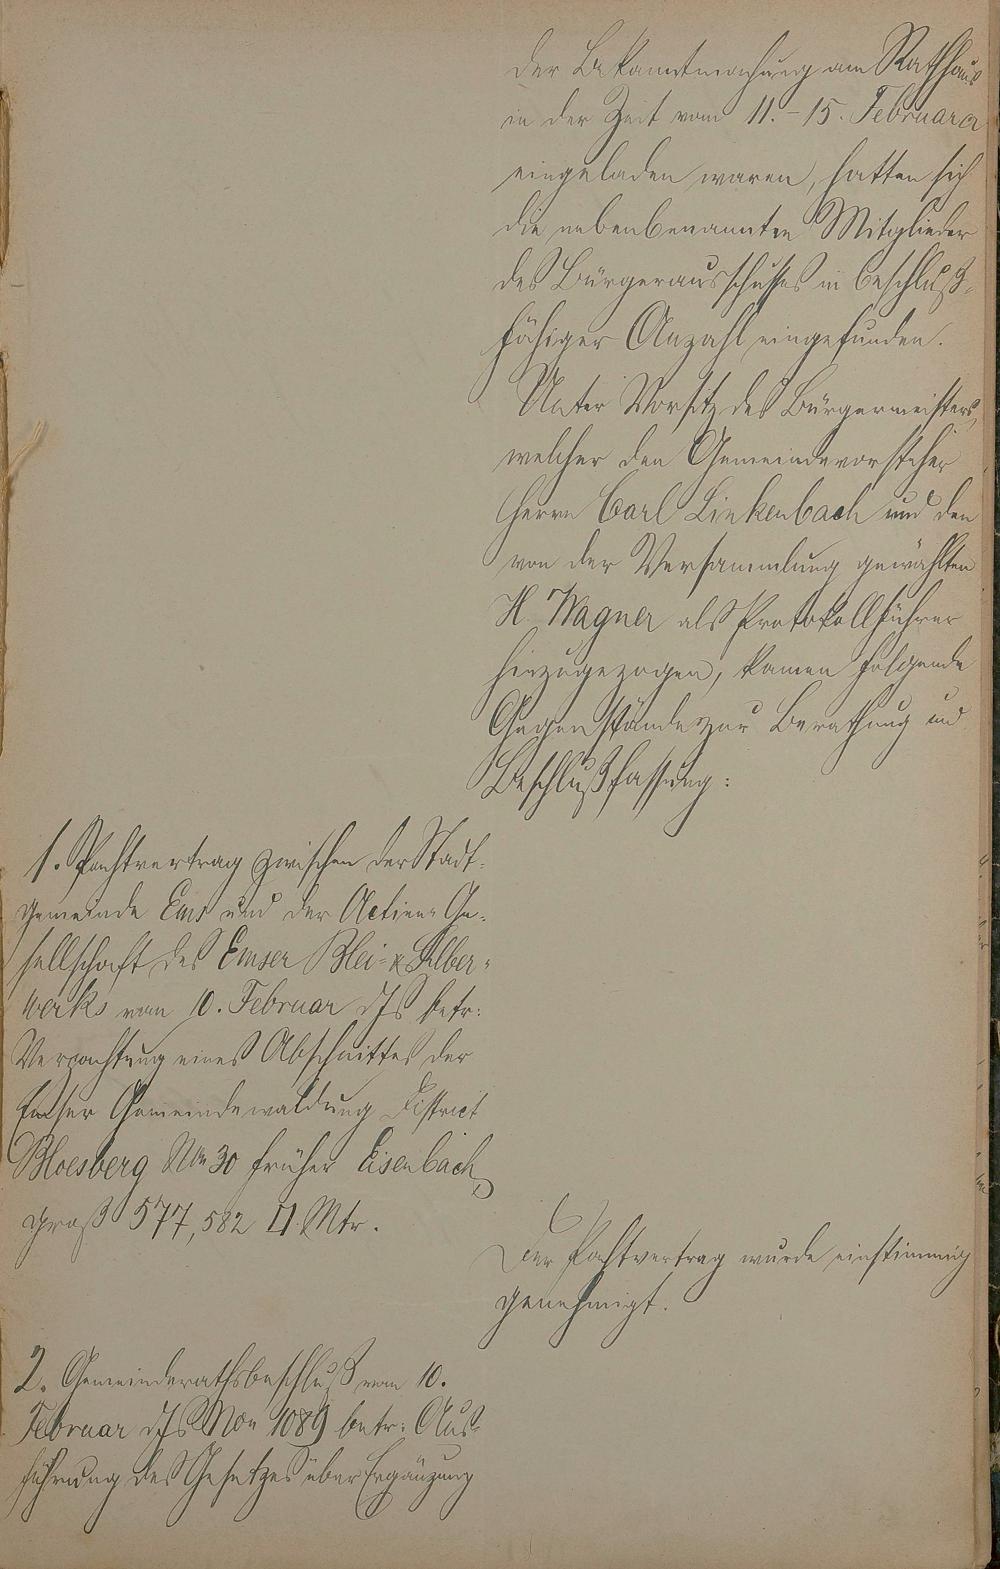 der Bekanntmachung am Rathhaus
in der Zeit vom 11.-15. Februar cr
eingeladen waren, hatten sich
die nebenbenannten Mitglieder
des Bürgerausschusses in beschluß-
fähiger Anzahl eingefunden.
Unter Vorsitz des Bürgermeisters,
welcher den Gemeindevorsteher
Herrn Carl Linkenbach und den
von der Versammlung gewählten
H. Wagner als Protokollführer
hinzugezogen, kamen folgende
Gegenstände zur Berathung und
Beschlußfassung:
1. Pachtvertrag zwischen der Stadt-
gemeinde Ems und der Actien-Ge-
sellschaft des Emser Blei- & Silber-
werks vom 10. Februar djs betr:
Verpachtung eines Abschnittes der
Emser Gemeindewaldung District
Bloesberg No 30 früher Eisenbach,
groß 577,582 □ Mtr.
Der Pachtvertrag wurde einstimmig
genehmigt.
2. Gemeinderathsbeschluß vom 10.
Februar djs No 1089 betr: Aus-
führung des Gesetzes über Ergänzung